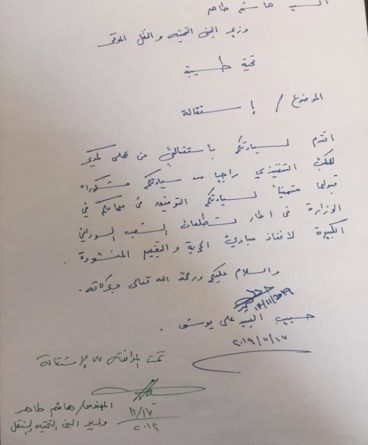 السيد هاشم طاهر
وزير البنى التحتية والنقل الموقر
تحية طيبة
الموضوع / إستقالة
اتقدم لسيادتكم باستقالتي من عملي كمدير
التنفيذي راجيا من سيادتكم مشكورا
قبولها متمنيا لسيادتكم التوفيق في مهامكم في
الوزارة في اطار تطلعات الشعب السوداني
الكبيرة لانفاذ مبادئ الحرية والتغيير المنشودة
والسلام عليكم ورحمة الله تعالى وبركاته.
١٧/١١/٢٠١٩
حسيب السيد علي يوسف.
٢٠١٩/١١/١٧
تمت الموافقة على الإستقالة
المهندس/ هاشم طاهر
١١/١٧
وزير البنى التحتية والنقل
٢٠١٩